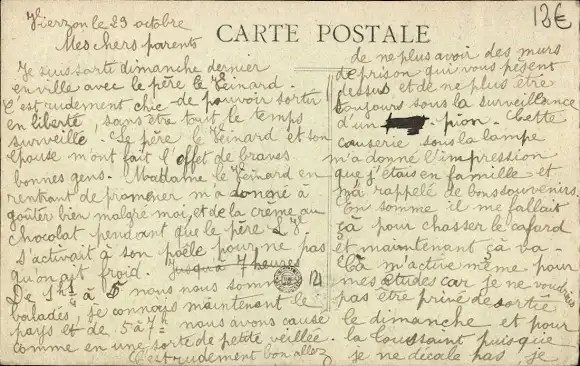 Vierzon le 29 octobre
CARTE POSTALE
13€
Mes chers parents
Je suis sorti dimanche dernier
en ville avec le père le Veinard.
C'est rudement chic de pouvoir sortir
en liberté, sans être tout le temps
surveillé. Le père le Veinard et son
épouse m'ont fait l'effet de braves
bonnes gens. Madame le Veinard en
rentrant de promener m'a donné à
goûter bien malgré moi, et de la crème au
chocolat pendant que le père L.V.
s'activait à son poêle pour ne pas
qu'on ait froid. Jusqu'à 7 heures
De 1h½ à 5 nous nous sommes
baladés, je connais maintenant le
pays et de 5 à 7h nous avons causé
comme en une sorte de petite veillée.
C'est rudement bon allez
de ne plus avoir des murs
de prison qui vous pèsent
dessus, et de ne plus être
toujours sous la surveillance
d'un pion. Cette
causerie sous la lampe
m'a donné l'impression
que j'étais en famille et
m'a rappelé de bons souvenirs.
En somme il me fallait
çà pour chasser le cafard
et maintenant çà va -
Cà m'active même pour
mes études car je ne voudrais
pas être privé de sortie
le dimanche et pour
la Toussaint puisque
je ne décale pas, je